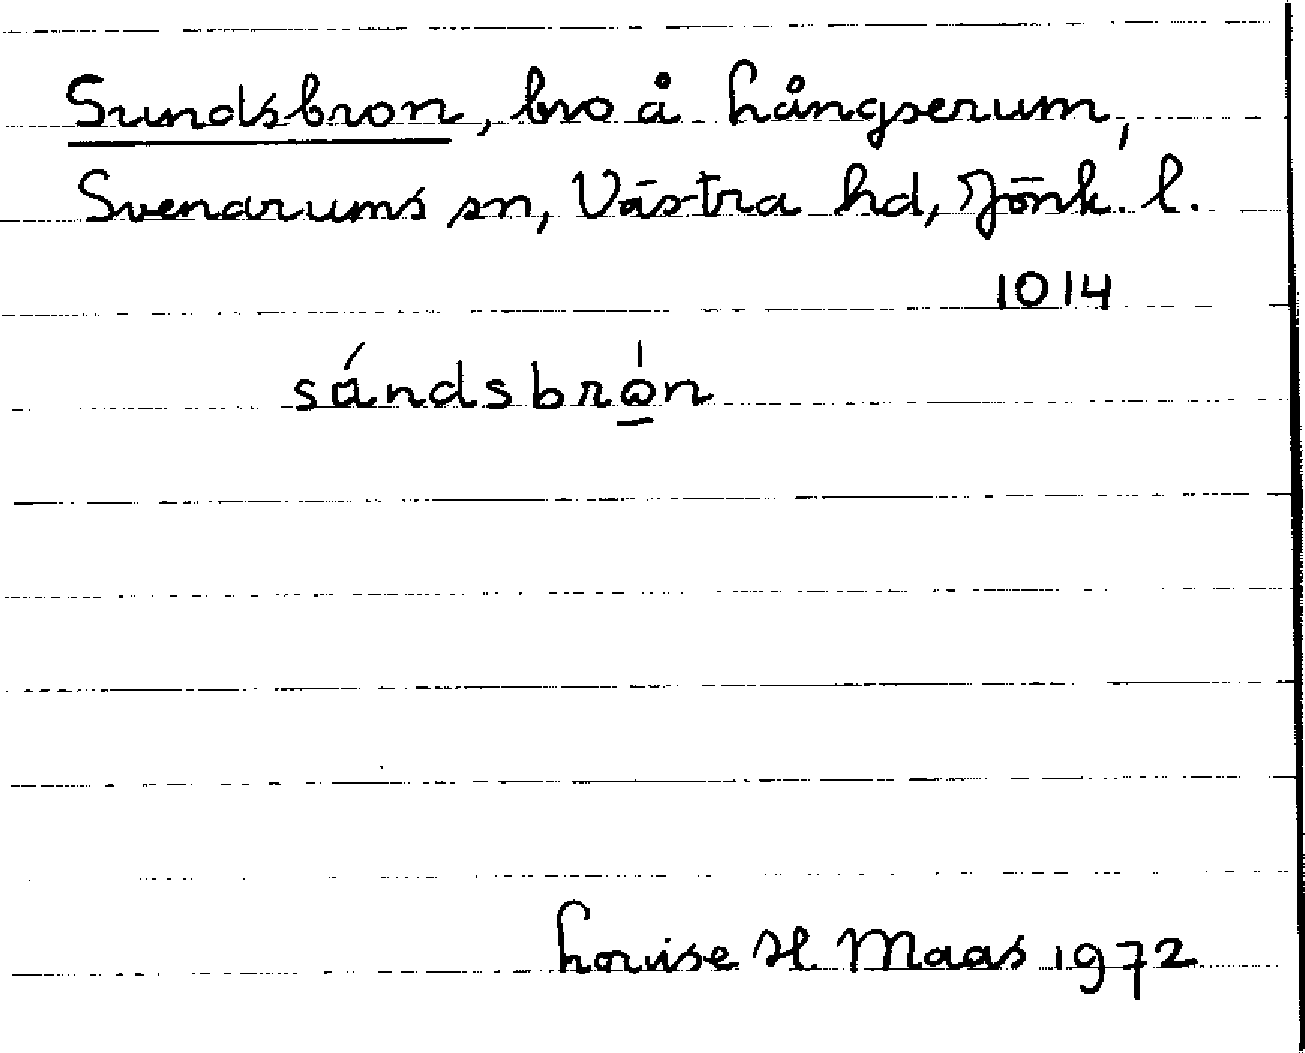 Sundsbron, bro å Långserum,
Svenarums sn, Västra hd, Jönk. l.
1014
sándsbròn
Louise H. Maas 1972